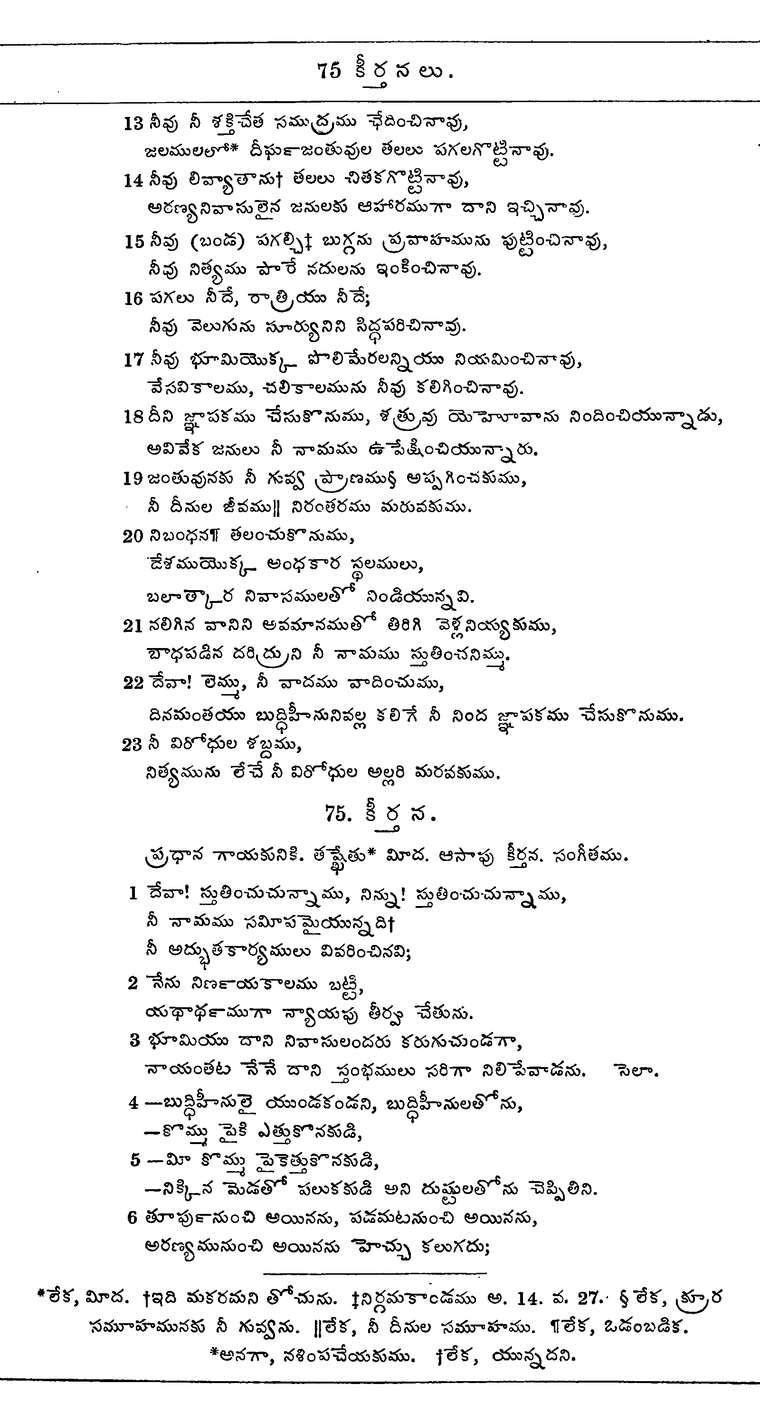 75 కీర్తనలు.
13 నీవు నీ శక్తిచేత సముద్రము ఛేదించినావు,
జలములలో* దీర్ఘజంతువుల తలలు పగలగొట్టినావు.
14 నీవు లివ్యాతాను† తలలు చితకగొట్టినావు,
అరణ్యనివాసులైన జనులకు ఆహారముగా దాని ఇచ్చినావు.
15 నీవు (బండ) పగల్చి‡ బుగ్గను ప్రవాహమును పుట్టించినావు,
నీవు నిత్యము పారే నదులను ఇంకించినావు.
16 పగలు నీదే, రాత్రియు నీదే;
నీవు వెలుగును సూర్యునిని సిద్ధపరిచినావు.
17 నీవు భూమియొక్క పొలిమేరలన్నియు నియమించినావు,
వేసవికాలము, చలికాలమును నీవు కలిగించినావు.
18 దీని జ్ఞాపకము చేసుకొనుము, శత్రువు యెహోవాను నిందించియున్నాడు,
అవివేక జనులు నీ నామము ఉపేక్షించియున్నారు.
19 జంతువునకు నీ గువ్వ ప్రాణము§ అప్పగించకుము,
నీ దీనుల జీవము‖ నిరంతరము మరువకుము.
20 నిబంధన¶ తలంచుకొనుము,
దేశముయొక్క అంధకార స్థలములు,
బలాత్కార నివాసములతో నిండియున్నవి.
21 నలిగిన వానిని అవమానముతో తిరిగి వెళ్లనియ్యకుము,
బాధపడిన దరిద్రుని నీ నామము స్తుతించనిమ్ము.
22 దేవా! లెమ్ము, నీ వాదము వాదించుము,
దినమంతయు బుద్ధిహీనునివల్ల కలిగే నీ నింద జ్ఞాపకము చేసుకొనుము.
23 నీ విరోధుల శబ్దము,
నిత్యమును లేచే నీ విరోధుల అల్లరి మరవకుము.
75. కీర్తన.
ప్రధాన గాయకునికి. తష్ఖేతు* మీద. ఆసాపు కీర్తన. సంగీతము.
1 దేవా! స్తుతించుచున్నాము, నిన్ను! స్తుతించుచున్నాము,
నీ నామము సమీపమైయున్నది†
నీ అద్భుతకార్యములు వివరించినవి;
2 నేను నిర్ణయకాలము బట్టి,
యథార్థముగా న్యాయపు తీర్వు చేతును.
3 భూమియు దాని నివాసులందరు కరుగుచుండగా,
నాయంతట నేనే దాని స్తంభములు సరిగా నిలిపేవాడను. సెలా.
4 —బుద్ధిహీనులై యుండకండని, బుద్ధిహీనులతోను,
—కొమ్ము పైకి ఎత్తుకొనకుడి,
5 —మీ కొమ్ము పైకెత్తుకొనకుడి,
—నిక్కిన మెడతో పలుకకుడి అని దుష్టులతోను చెప్పితిని.
6 తూర్పునుంచి అయినను, పడమటనుంచి అయినను,
అరణ్యమునుంచి అయినను హెచ్చు కలుగదు;
*లేక, మీద. †ఇది మకరమని తోచును. ‡నిర్గమకాండము అ. 14. వ. 27. §లేక, క్రూర
సమూహమునకు నీ గువ్వను. ‖లేక, నీ దీనుల సమూహము. ¶లేక, ఒడంబడిక.
*అనగా, నశింపచేయకుము. †లేక, యున్నదని.